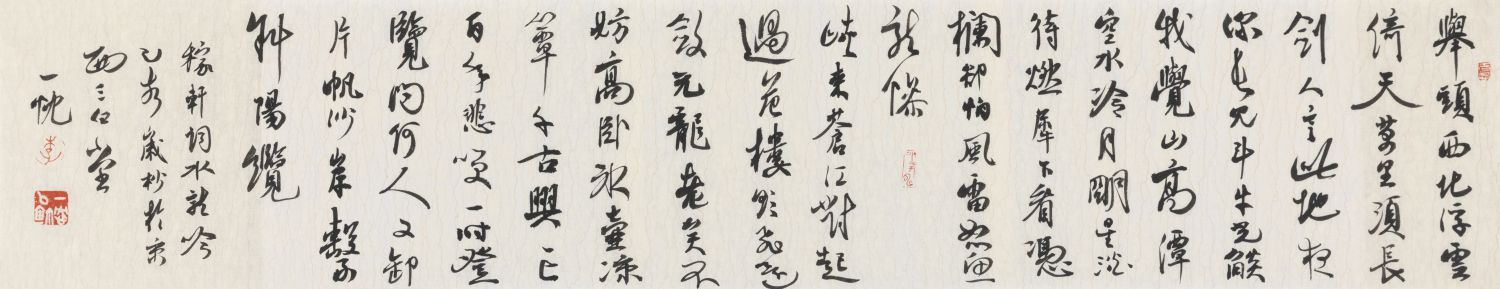 舉頭西北浮雲
倚天萬里須長
劍人言此地夜
深長見斗牛光燄
我覺山高潭
空水冷月明星淡
待燃犀下看憑
欄却怕風雷怒魚
龍慘
峽束蒼江對起
過危樓欲飛還
斂元龍老矣不
妨高卧冰壺凉
簟千古興亡
百年悲笑一時登
覽問何人又卸
片帆沙岸繫
斜陽纜
稼軒詞水龍吟
乙歲杪於京
西三堂
一忱
李